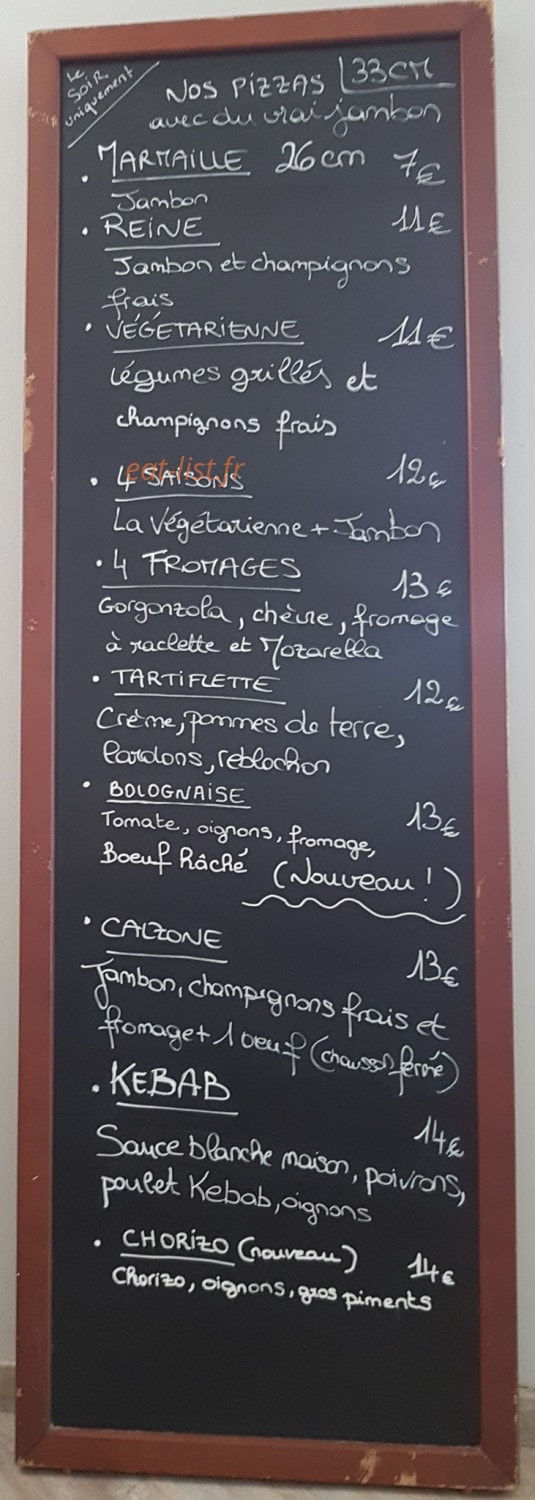 Le
SOIR
uniquement
NOS PIZZAS 33CM
avec du vrai jambon
. MARMAILLE 26cm 7€
Jambon
. REINE 11€
Jambon et champignons
frais
. VÉGÉTARIENNE 11€
Légumes grillés et
champignons frais
eat-list.fr
. 4 SAISONS 12€
La Végétarienne + Jambon
. 4 FROMAGES 13€
Gorgonzola, chèvre, fromage
à raclette et Mozarella
. TARTIFLETTE 12€
Crème, pommes de terre,
lardons, reblochon
. BOLOGNAISE 13€
Tomate, oignons, fromage,
Boeuf hâché (Nouveau !)
. CALZONE 13€
Jambon, champignons frais et
fromage + 1 oeuf (chausson fermé)
. KEBAB 14€
Sauce blanche maison, poivrons,
poulet Kebab, oignons
. CHORIZO (nouveau) 14€
Chorizo, oignons, gros piments